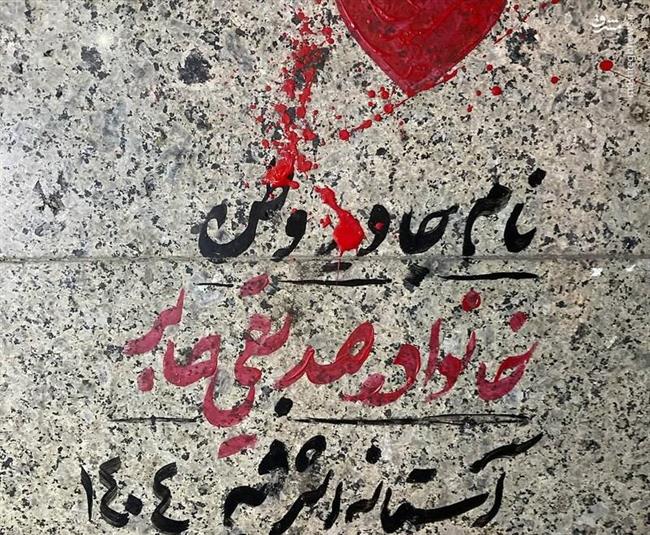 نام جاوید وطن
خانواده صدیقی صابر
آستانه اشرفیه
۱۴۰۴